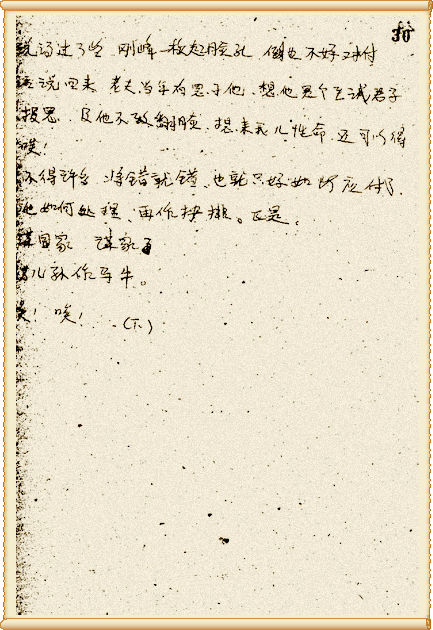 30
说过了些 刚峰一板起脸孔 倒也不好对付
话说回来 老夫当年有恩于他 想他是个至诚君子
报恩 且他不敢翻脸 想来我儿性命 还可以得
唉！
不得许多 将错就错 也就只好如此应付了
他如何处理 再作抉择。正是。
谋国家 谋家
儿孙作马牛。
唉！唉！ （下）